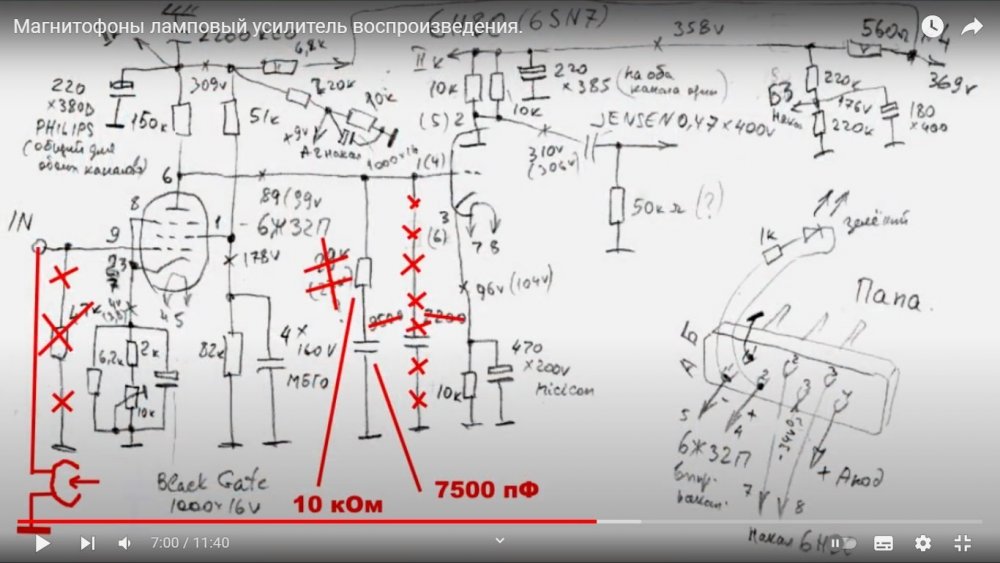 Магнитофоны ламповый усилитель воспроизведения.
6,8к
II к
358v
560Ω
369v
220
×380D
PHILIPS
(общий для
обоих каналов)
309v
150к
51к
220к
10к
1000×16
10к
220
×385
(на оба
канала один)
10к
БЗ
220к
176v
220к
180
×400
JENSEN 0,47×400v
310v
(306v)
50к Ω (?)
(5) 2
1(4)
3
(6)
7 8
96v (104v)
6
8
9
1
2 3
7
4 5
IN
89 (99v)
6Ж32П
178v
47к
6,2к
2к
10к
82к
4×
160V
МБГО
2200
10к
470
×200v
Black Gate
1000×16v
10 кОм
7500 пФ
1к
зелёный
Папа.
А Б
1
2
2
3
3
4
5
-
+
4
6Ж32П
7
8
+ Анод
Накал 6Н8С
7:00 / 11:40